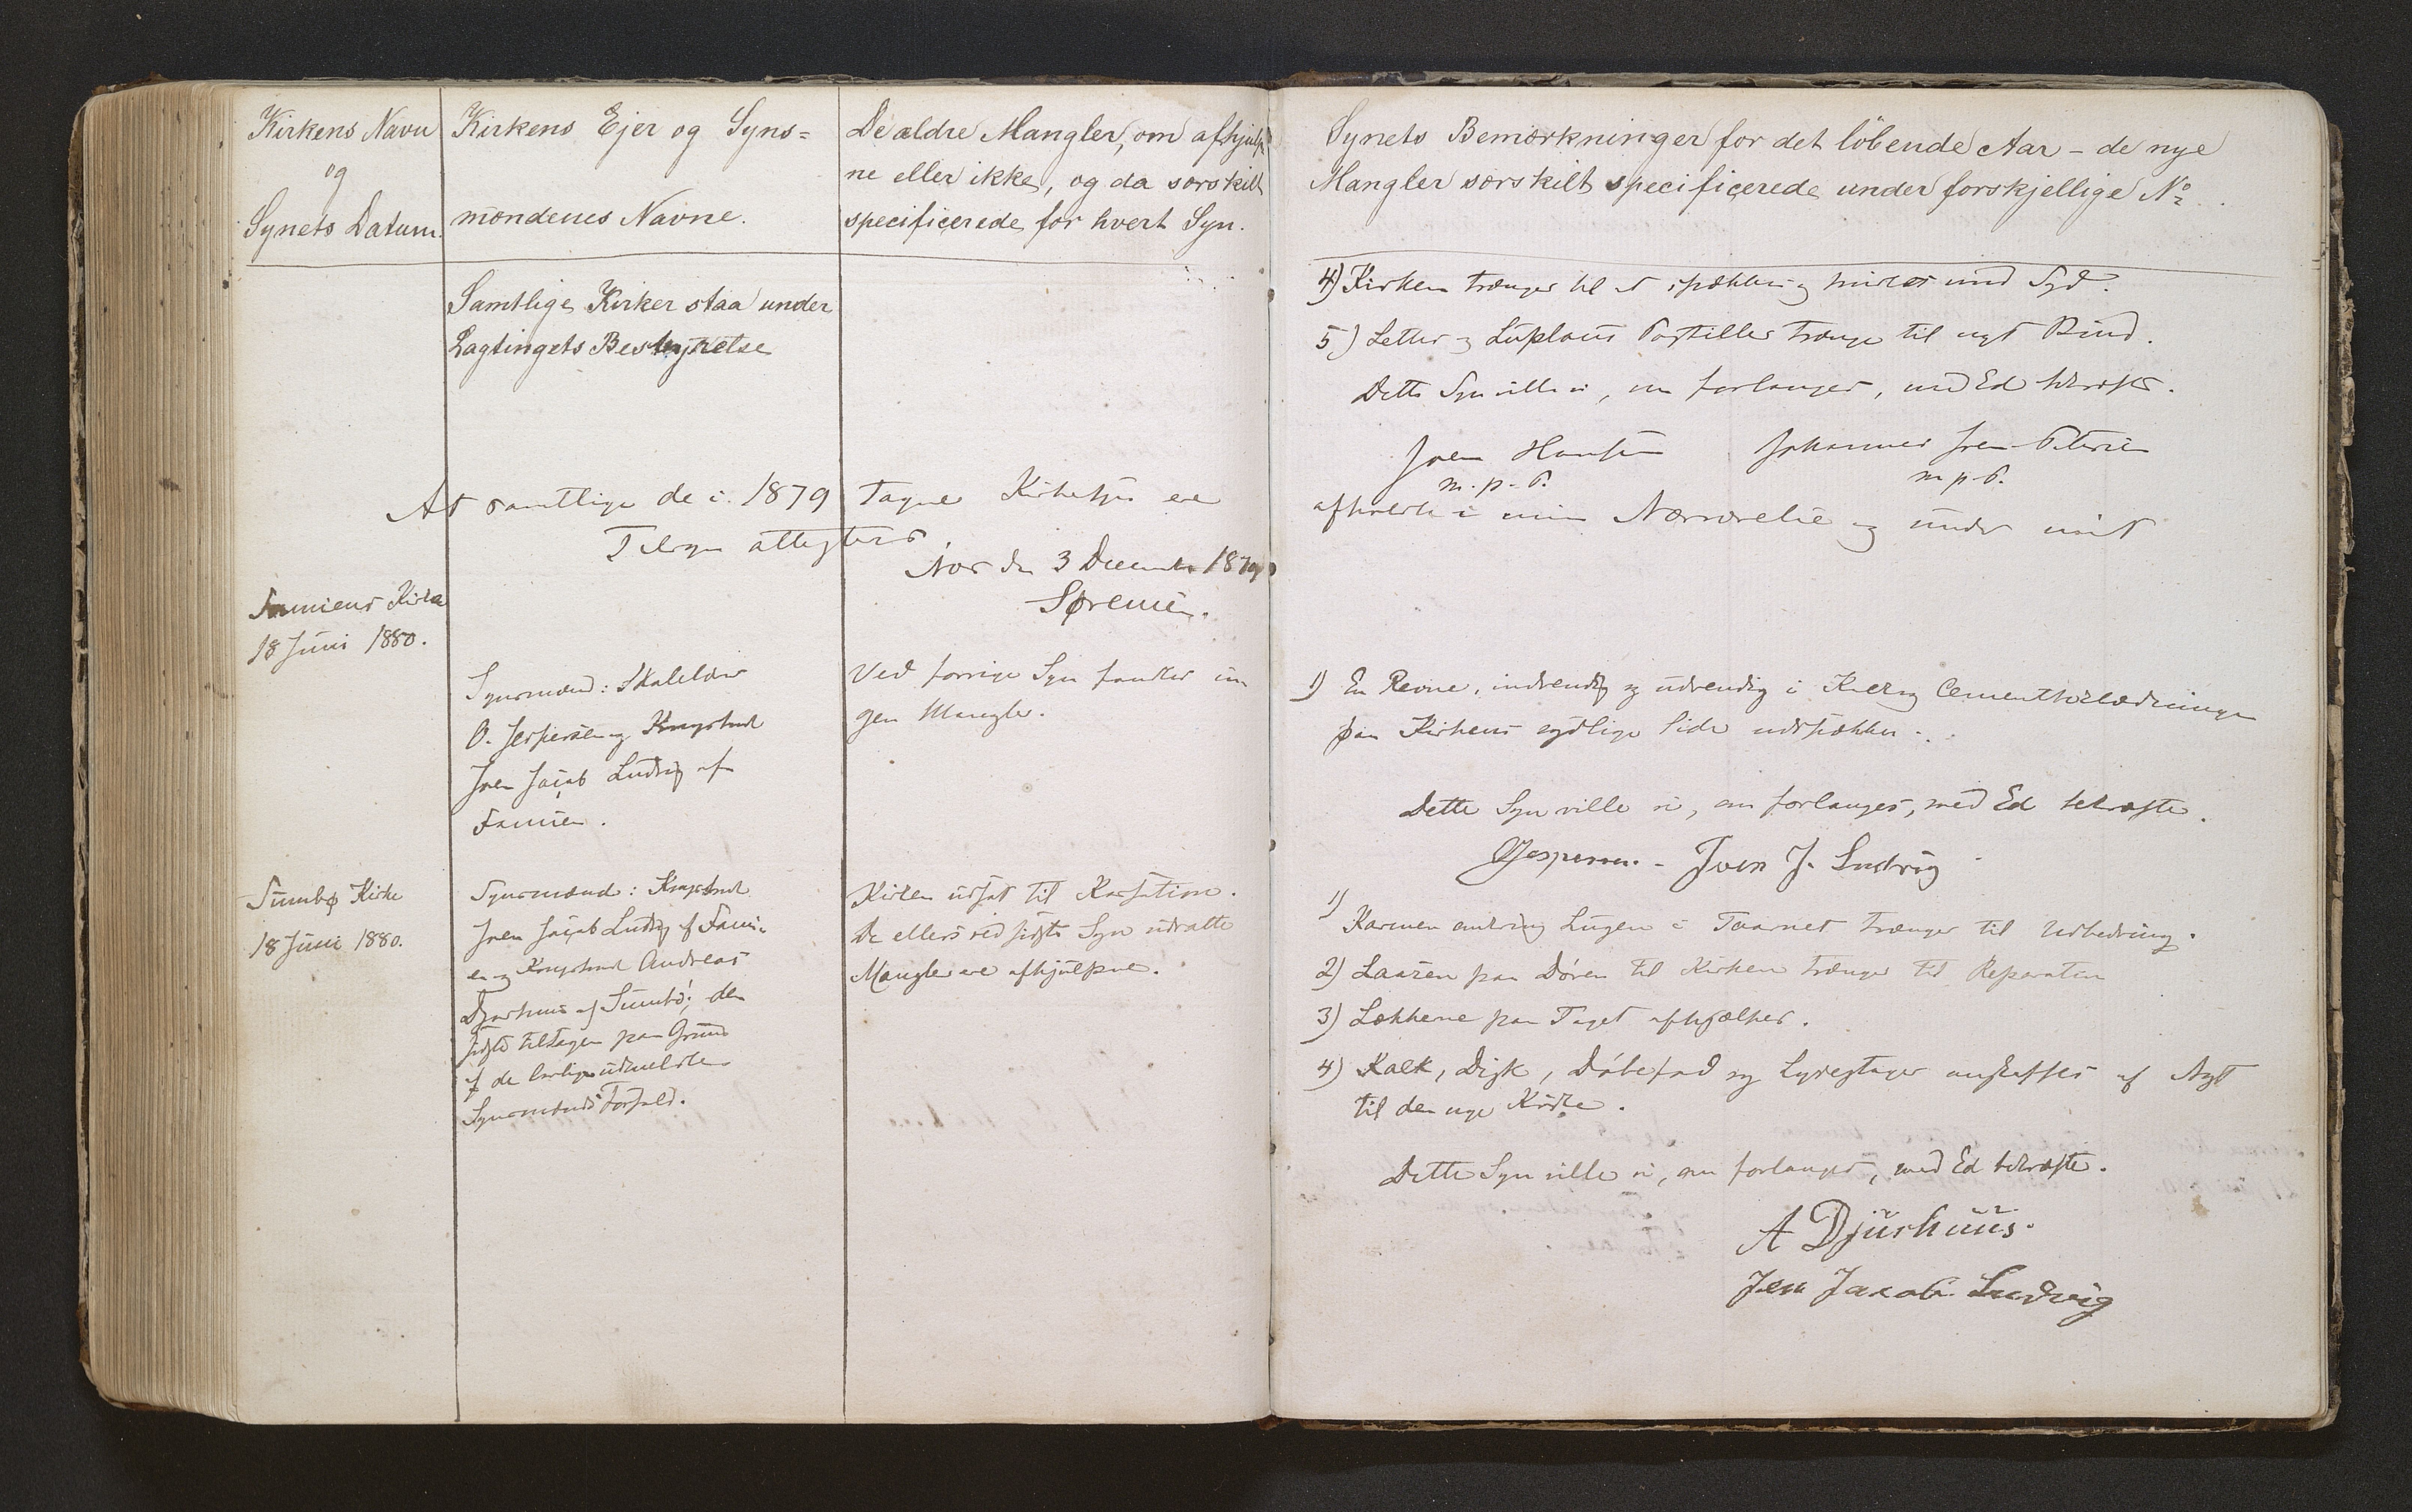 Kirkens Navn
og
Synets Datum.
Kirkens Ejer og Syns=
mændenes Navne.
De ældre Mangler, om afhjulp
ne eller ikke, og da særskilt
specificerede for hvert Syn.
Samtlige Kirker staa under
Lagtingets Bestyrelse
At samtlige de i 1879 tagne Kirkesyn ere
Tilsyn
den 3 December 1879
Sørensen.
Famiens Kirke
18 Juni 1880.
Synsmænd: Skolelærer
O. Jespersen og Kongsbonde
Joen Jacob Ludvig af
Famien.
Ved forrige Syn fandtes in
gen Mangler.
Sumbø Kirke
18 Juni 1880.
Synsmænd: Kongsbonde
Joen Jacob Ludvig af Fami-
en og Kongsbonde Andreas
Djurhuus af Sumbø; den
sidste tiltagen paa Grund
af de lovlige udmeldte
Synsmænds Forfald.
Kirken udsat til Kassation.
De ellers ved sidste Syn udsatte
Mangler ere afhjulpne.
Synets Bemærkninger for det löbende Aar - de nye
Mangler særskilt specificerede under forskjellige No.
4) Kirken trænger til at spækkes og mod Syd.
5) Letter og Luplaus Postiller trænge til nyt Bind.
Dette Syn ville vi, om forlanges, med Ed bekræfte.
Joen Hansen Johannes Joen Petersen
m. p. P. m. p. P.
afholdt i min Nærværelse og under mit
1) En Revne, indvendig og udvendig i Kalk og Cementbeklædningen
paa Kirkens sydlige Side udspækkes.
Dette Syn ville vi, om forlanges, med Ed bekræfte.
OJespersen. - Joen J. Ludvig
1) Karmen omkring Lugen i Taarnet trænger til Udbedring.
2) Laasen paa Døren til Kirken trænger til Reparation
3) Lækkene paa Taget afhjælpes.
4) Kalk, Disk, Döbefad og Lysestager anskaffes af Nyt
til den nye Kirke.
Dette Syn ville vi, om forlanges, med Ed bekræfte.
A Djurhuus.
Joen Jacob Ludvig